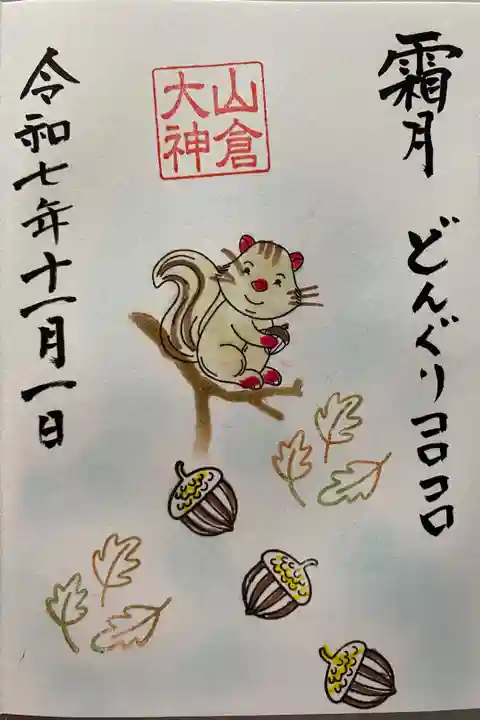 霜月
どんぐりコロコロ
山倉
大神
令和七年十一月一日